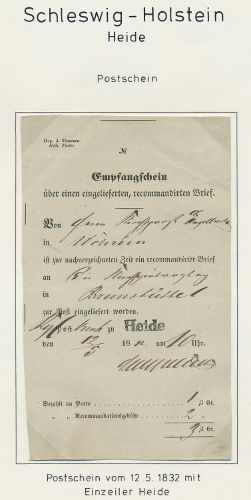 Schleswig-Holstein
Heide
Postschein
№
Empfangschein
über einen eingelieferten, recommandirten Brief.
Von Herrn Kirchspielvogt
in Wöhrden
ist zur nachverzeichneten Zeit ein recommandirter Brief
an
in Brunsbüttel
zur Post eingeliefert worden.
Post zu Heide
den 12/5 18 um 10 Uhr.
Bezahlt an Porto 1 ß Ct.
„ „ Recommandationsgebühr 2 „
3 ß Ct.
Postschein vom 12.5.1832 mit
Einzeiler Heide